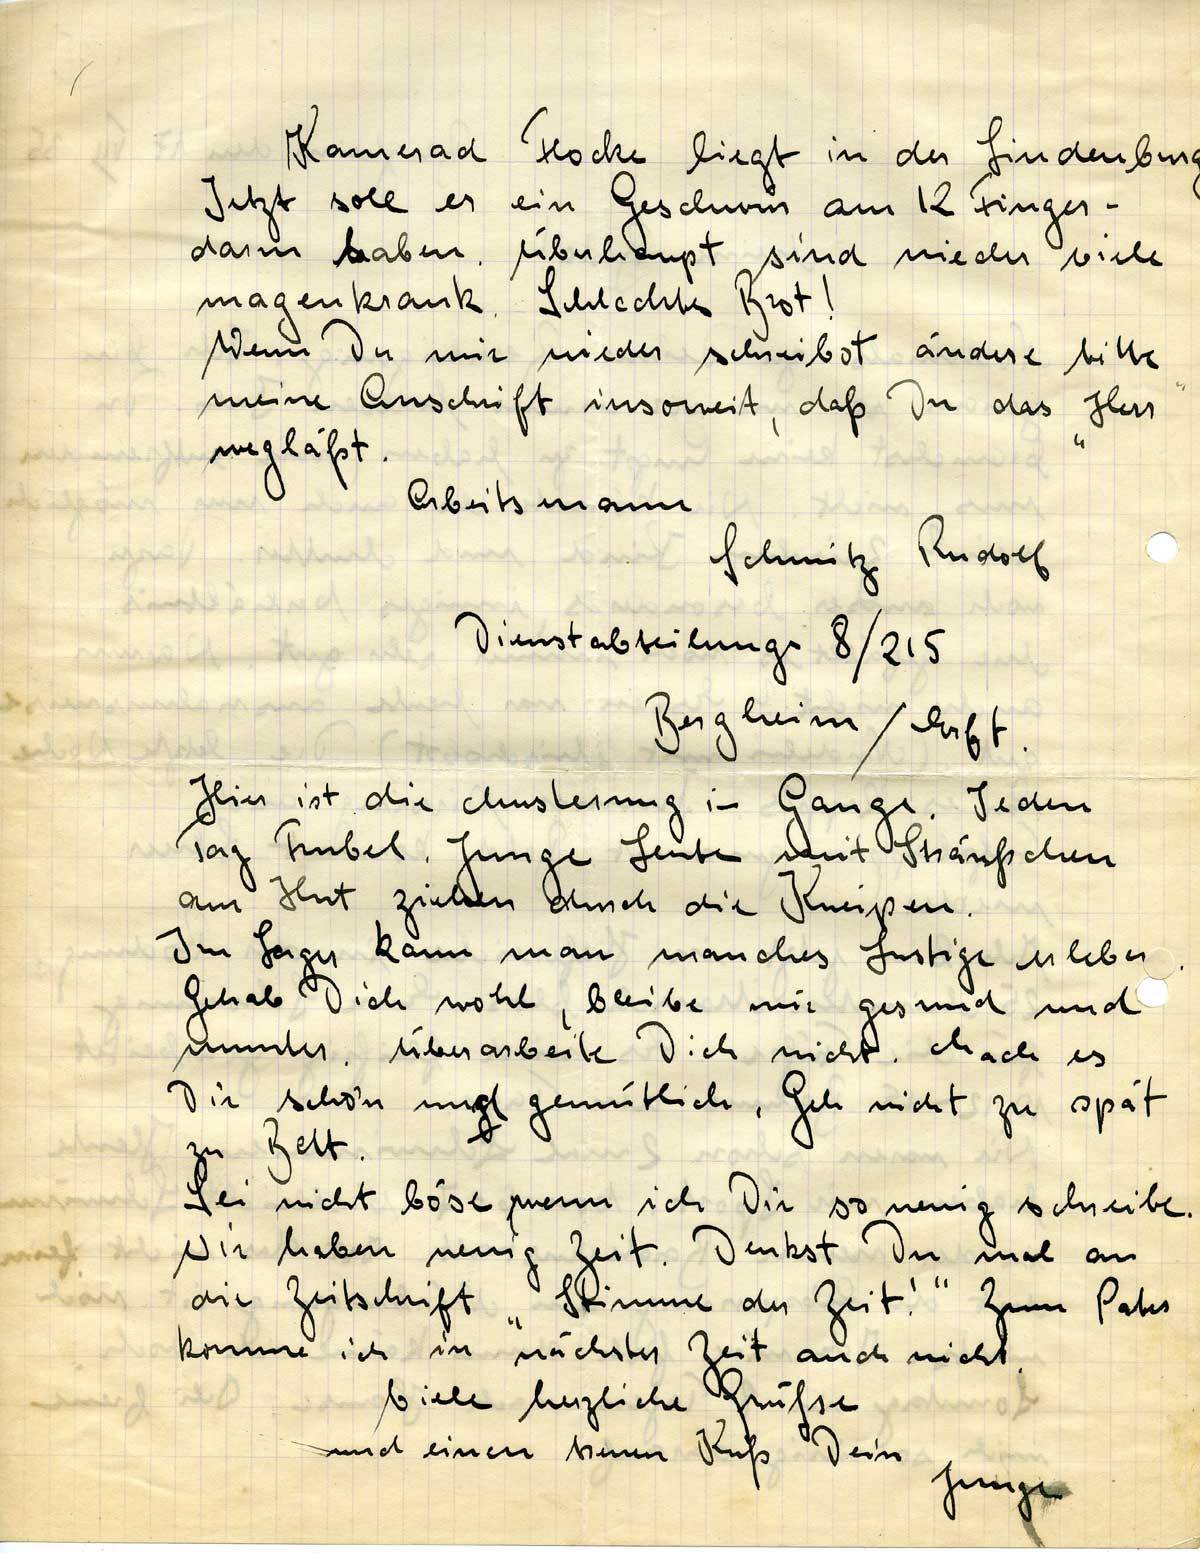 Kamerad Flocke liegt in der Lindenburg
Jetzt soll er ein Geschwür am 12 Finger-
darm haben. Überhaupt sind wieder viele
magenkrank. Schlechtes Brot!
Wenn Du mir wieder schreibst ändere bitte
meine Anschrift insoweit, daß Du das „Herr“
wegläßt.
Arbeitsmann
Schmitz Rudolf
Dienstabteilung 8/215
Bergheim / Erft.
Hier ist die Musterung in Gange. Jeden
Tag Trubel. Junge Leute mit Sträußchen
am Hut ziehen durch die Kneipen.
Im Lager kann man manches Lustige erleben.
Gehab Dich wohl, bleibe mir gesund und
munter. Überarbeite Dich nicht. Mach es
Dir schön und gemütlich, Geh nicht zu spät
zu Bett.
Sei nicht böse, wenn ich Dir so wenig schreibe.
Wir haben wenig Zeit. Denkst Du mal an
die Zeitschrift „Stimme der Zeit!“ Zum Pater
komme ich in nächster Zeit auch nicht.
Viele herzliche Grüße
und einen treuen Kuß Dein
Junge